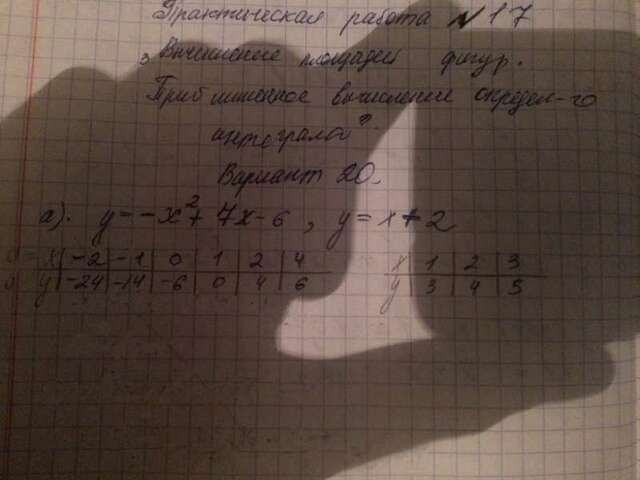 Практическая работа №17
„Вычисление площадей фигур.
Приближенное вычисление определ-го
интегралов".
Вариант 20.
а). y = -x²+ 7x-6 , y = x+2
x -2 -1 0 1 2 4 x 1 2 3
y -24 -14 -6 0 4 6 y 3 4 5